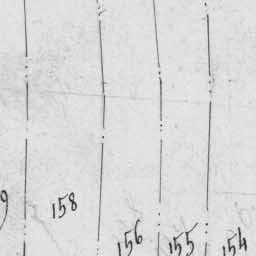 9
158
156
155
154